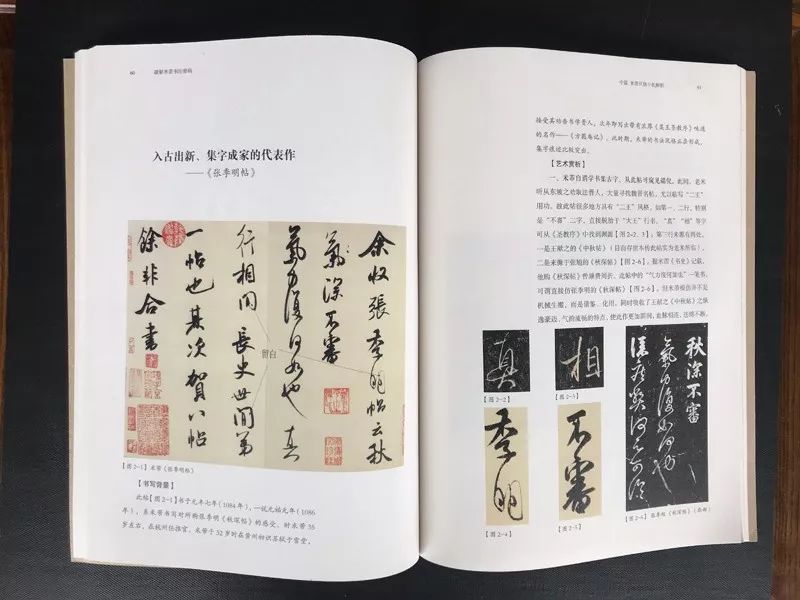 60
破解米芾书法密码
入古出新、集字成家的代表作
——《张季明帖》
余收張季明帖云秋
氣深不審
氣力復何如也真
行相間長史世間第
一帖也其次賀八帖
餘非合書
留白
【图2-1】米芾《张季明帖》
【书写背景】
此帖【图2-1】书于元丰七年（1084年），一说元祐元年（1086
年），系米芾书写对所购张季明《秋深帖》的感受。时米芾35
岁左右，在杭州任推官。米芾于32岁时在黄州相识苏轼于雪堂，
61
接受其劝告书学晋人，次年即写出带有浓厚《集王圣教序》味道
的名作——《方圆庵记》。此时期，米芾的书法风格正在形成，
集字痕迹比较突出。
【艺术赏析】
一、米芾自谓学书集古字，从此帖可窥见端倪。此间，老米
听从东坡之劝取法晋人，大量寻找魏晋名帖，尤以临写“二王”
用功。故此帖很多地方具有“二王”风格，如第一、二行，特别
是“不審”二字，直接脱胎于“大王”行书，“真”“相”等字
可从《圣教序》中找到渊源【图2-2、3】；第三行来源有两处，
一是王献之的《中秋帖》（目前存世本传此帖实为老米所临），
二是来源于张旭的《秋深帖》【图2-6】。据米芾《书史》记载，
他购《秋深帖》曾颇费周折。此帖中的“气力復何如也”一笔书，
可谓直接仿张季明的《秋深帖》【图2-6】。但米芾模仿并不是
机械生硬，而是借鉴、化用，同时吸收了王献之《中秋帖》之纵
逸豪迈、气韵流畅的特点，使此作更加跌宕、血脉相连、连绵不断，
真
【图2-2】
相
【图2-3】
季明
【图2-4】
不審
【图2-5】
秋深不審
氣力復如何也
【图2-6】张季明《秋深帖》（局部）